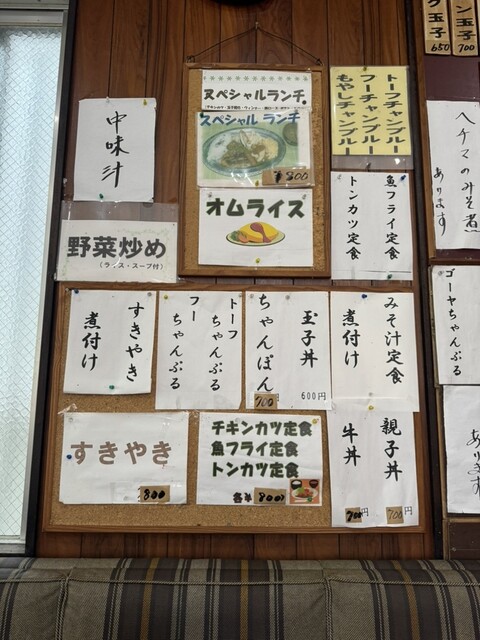 ク玉子
650
ン玉子
700
スペシャルランチ
スペシャル ランチ
¥800
オムライス
トーフチャンプルー
フーチャンプルー
もやしチャンプルー
中味汁
野菜炒め
(ライス・スープ付)
魚フライ定食
トンカツ定食
ヘチマのみそ煮
あります
ゴーヤちゃんぷる
すきやき
煮付け
トーフ
ちゃんぷる
フー
ちゃんぷる
玉子丼
600円
ちゃんぽん
700
みそ汁定食
煮付け
すきやき
800
チキンカツ定食
魚フライ定食
トンカツ定食
各¥800
親子丼
700円
牛丼
700円
あります